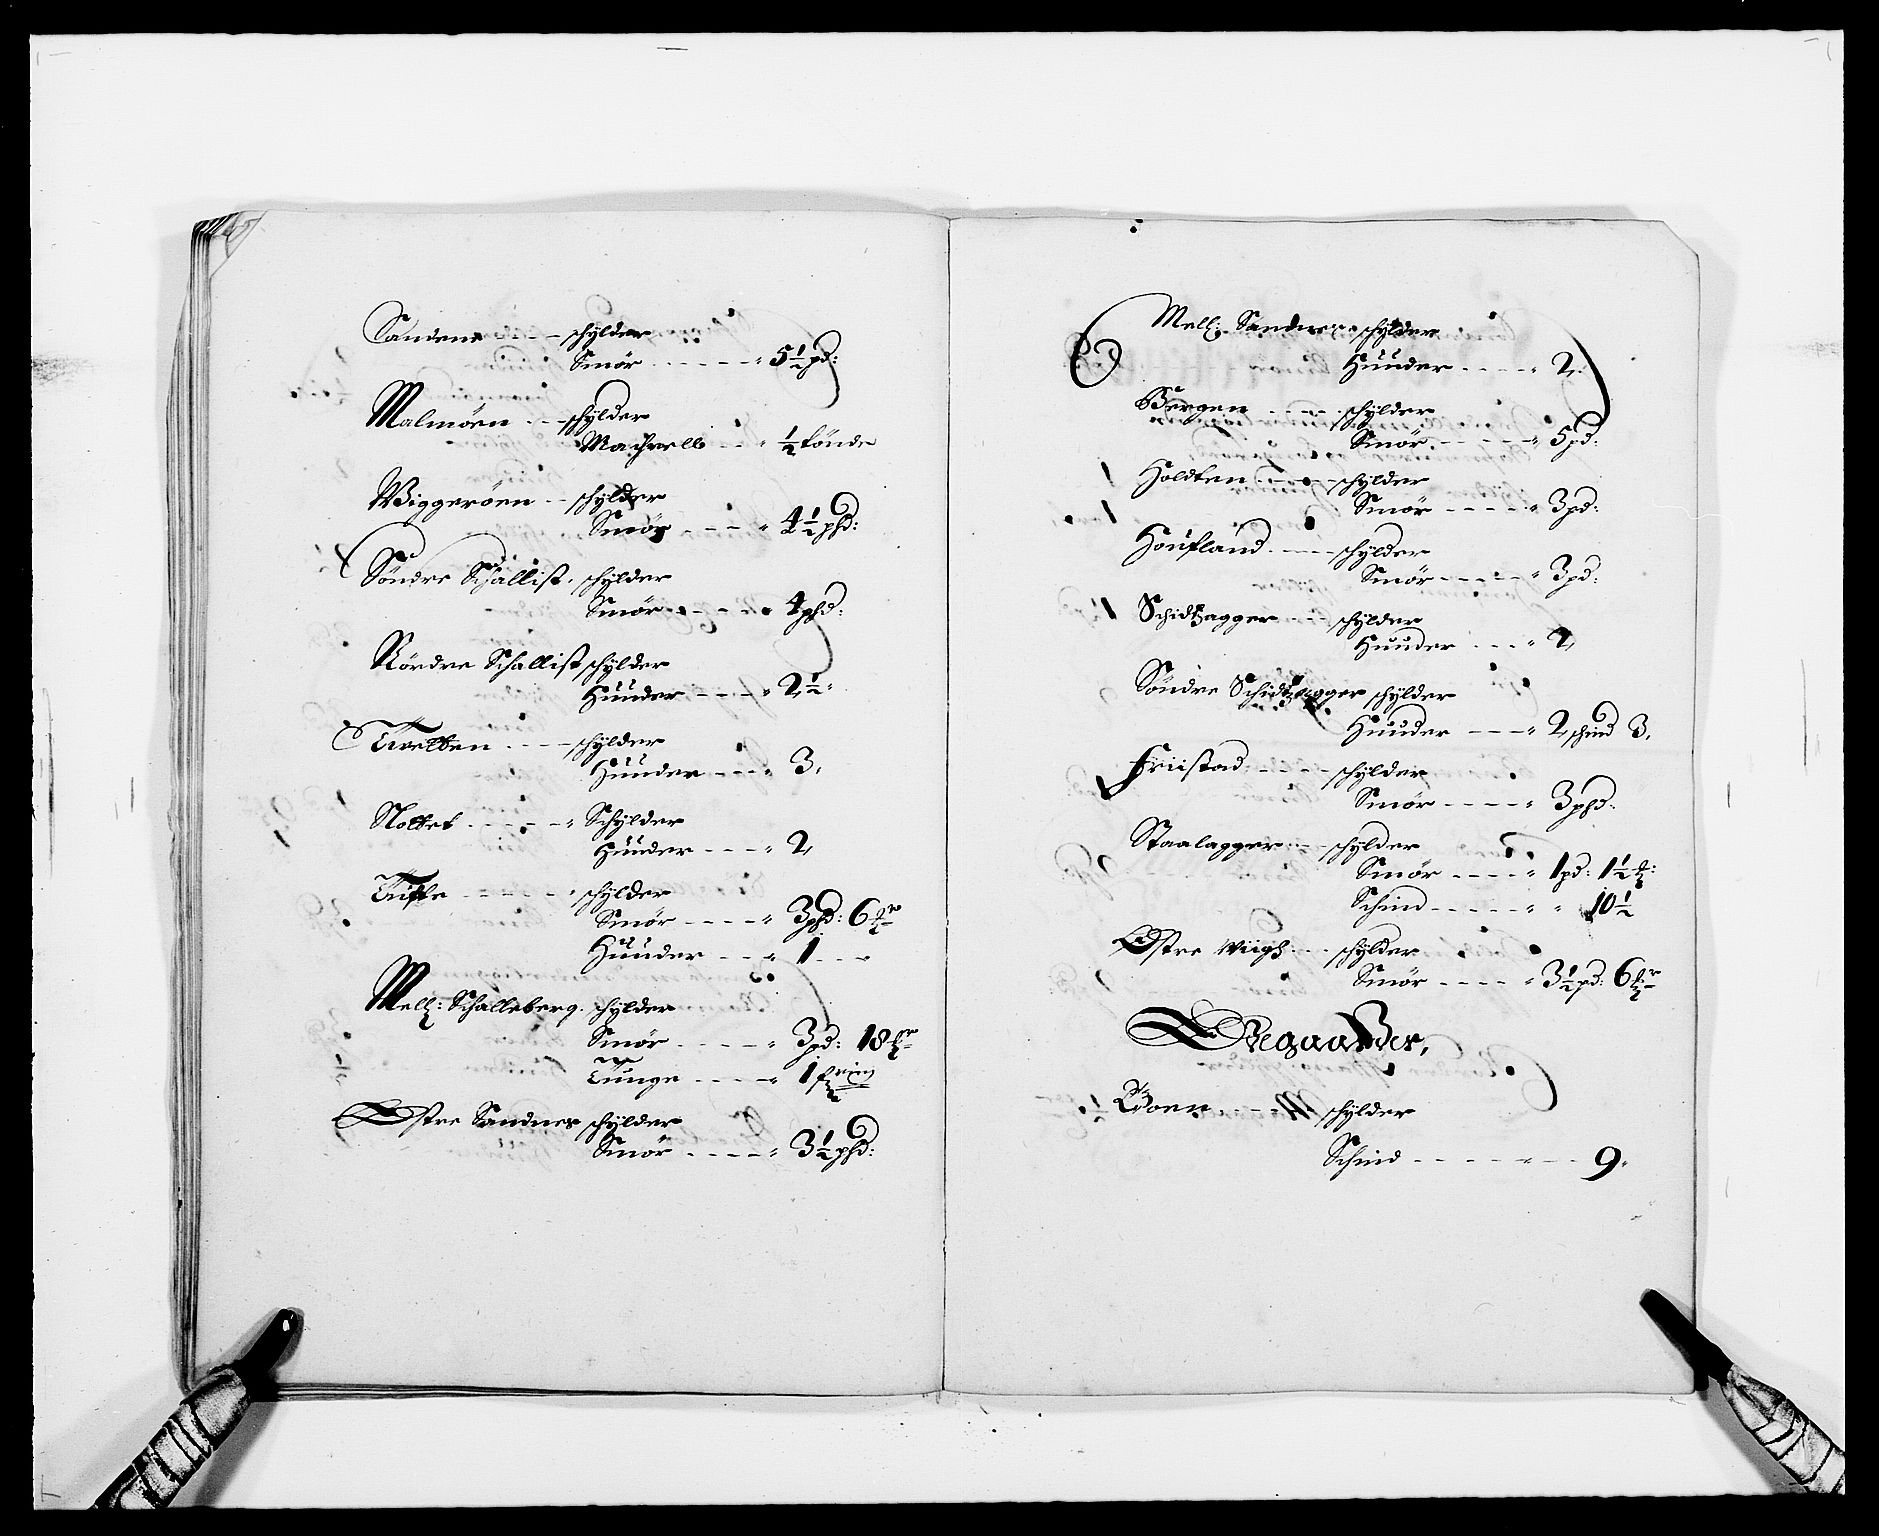 Sandene - - - schylder
Smör - - - - - 5½ pd:
Malmöen - - - schylder
Machrell - - - ½ tönde
Wiggeröen - - schylder
Smör - - - - 4½ phd:
Söndre Schallist. schylder
Smör - - - - 4 phd:
Nördre Schallist schylder
Huuder - - - - 2½
Tvetten - - - schylder
Huuder - - - 3,
Nottet - - - - - Schylder
Huuder - - - 2,
Tuffte - - - - - schylder
Smör - - - - 3 phd: 6 mr
Huuder - - - 1 - - -
Mell: Schalleberg. schylder
Smör - - - - 3 pd: 18 mr
Tunge - - - - 1
Østre Sandnes schylder
Smör - - - - 3½ phd:
Mell: Sandnes schylder
Huuder - - - - 2,
Bergen - - - - schylder
Smör - - - - - 5 pd:
Holdten - - - - schylder
Smör - - - - - 3 pd:
Houfland - - - schylder
Smör - - - - - 3 pd:
Schidtzagger - - - schylder
Huuder - - - 2,
Söndre Schidtzagger schylder
Huuder - - - 2, schind 3,
Friistad - - - - schylder
Smör - - - - 3 phd:
Staalagger - - schylder
Smör - - - - 1 pd: 1½ mr:
Schind - - - - - 10½
Østre Wiigh - - - schylder
Smör - - - - 3½ pd: 6 mr
Ødegaarder,
Boen - - - - schylder
Schind - - - - - - - 9